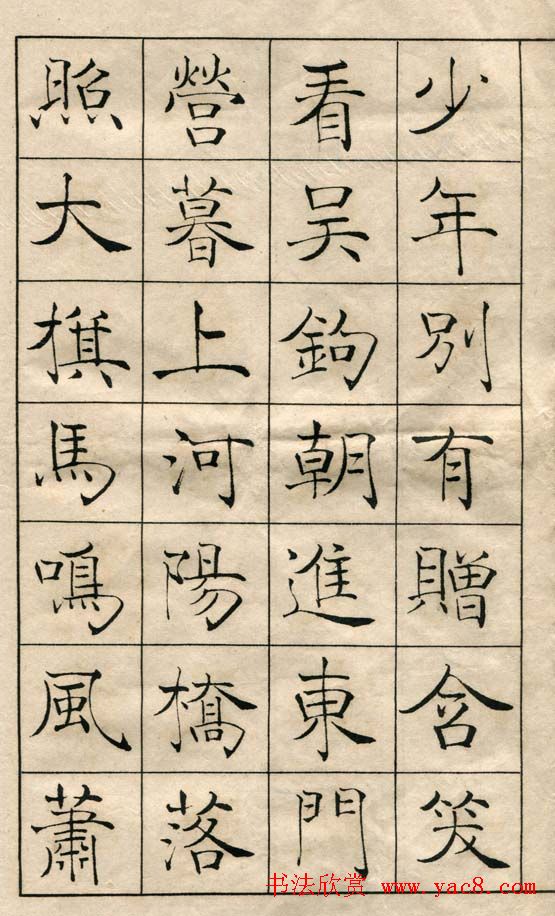 少年別有贈含笑
看吴鉤朝進東門
營暮上河陽橋落
照大旗馬鳴風蕭
书法欣赏 www.yac8.com